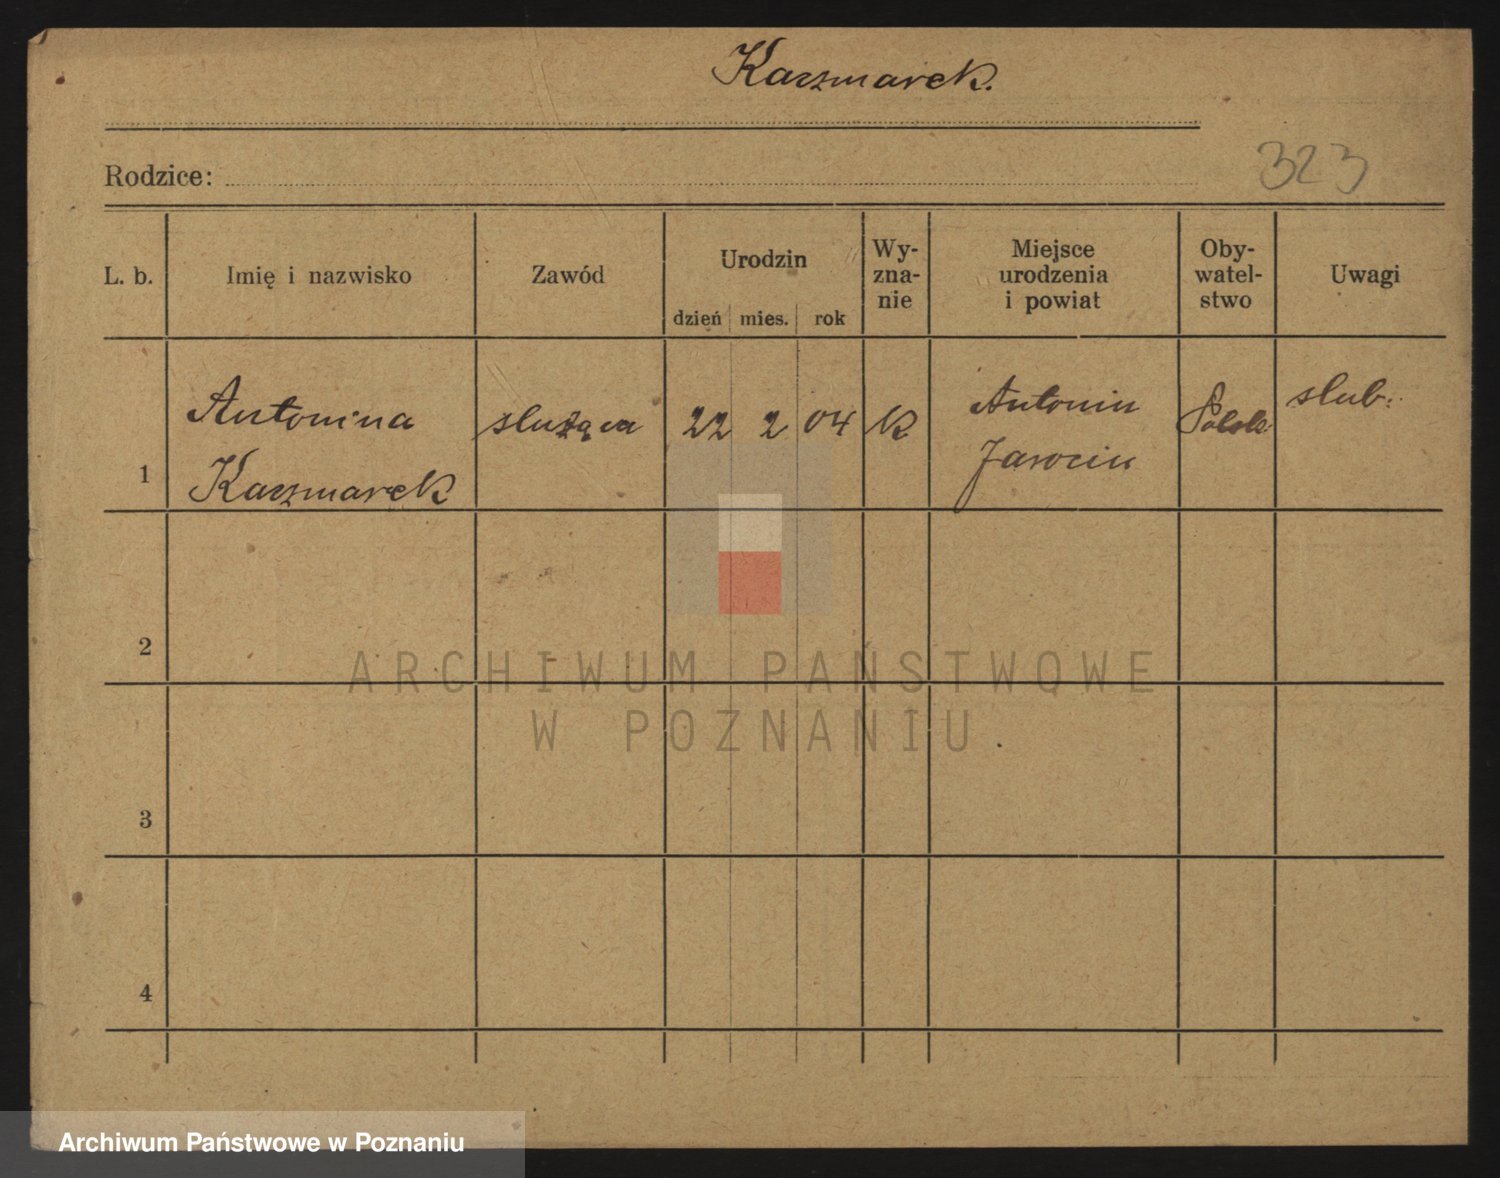 Kaczmarek.
Rodzice:
323
L. b.
Imię i nazwisko
Zawód
Urodzin
dzień mies. rok
Wy-
zna-
nie
Miejsce
urodzenia
i powiat
Oby-
watel-
stwo
Uwagi
1
Antonina
Kaczmarek
służąca
22 2 04
k
Antonin
Jarocin
Polsk
slub.
2
3
4
ARCHIWUM PAŃSTWOWE
W POZNANIU
Archiwum Państwowe w Poznaniu